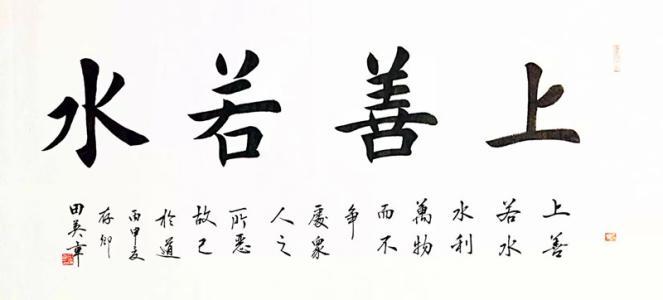 上善若水
上善
若水
水利
萬物
而不
争
處衆
人之
所惡
故已
於道
丙申夏
田英章